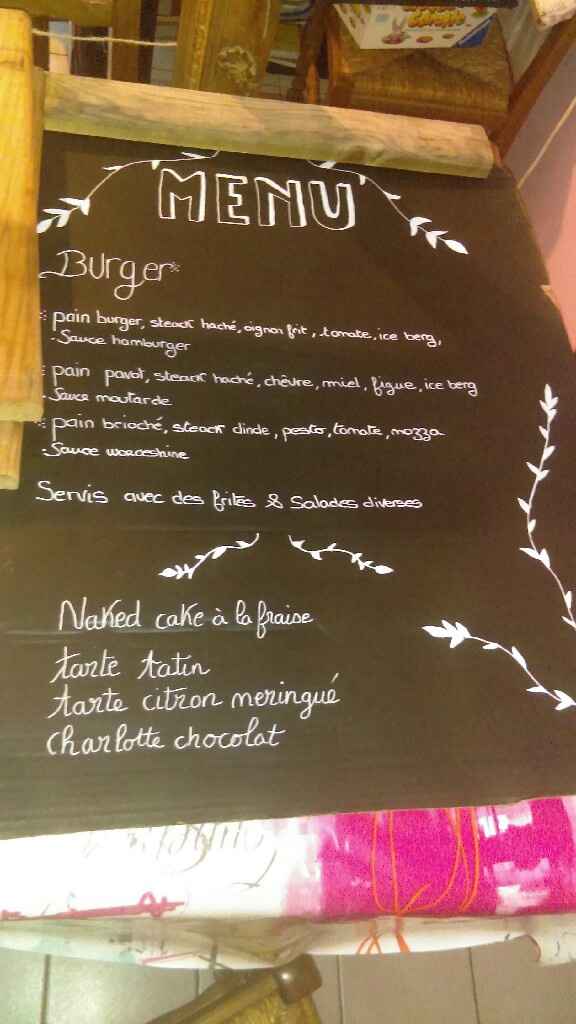 MENU
Burger
pain burger, steack haché, oignon frit, tomate, ice berg,
- Sauce hamburger
pain pavot, steack haché, chèvre, miel, figue, ice berg
- Sauce moutarde
pain brioché, steack dinde, pesto, tomate, mozza
- Sauce worceshine
Servis avec des frites & Salades diverses
Naked cake à la fraise
tarte tatin
tarte citron meringué
Charlotte chocolat